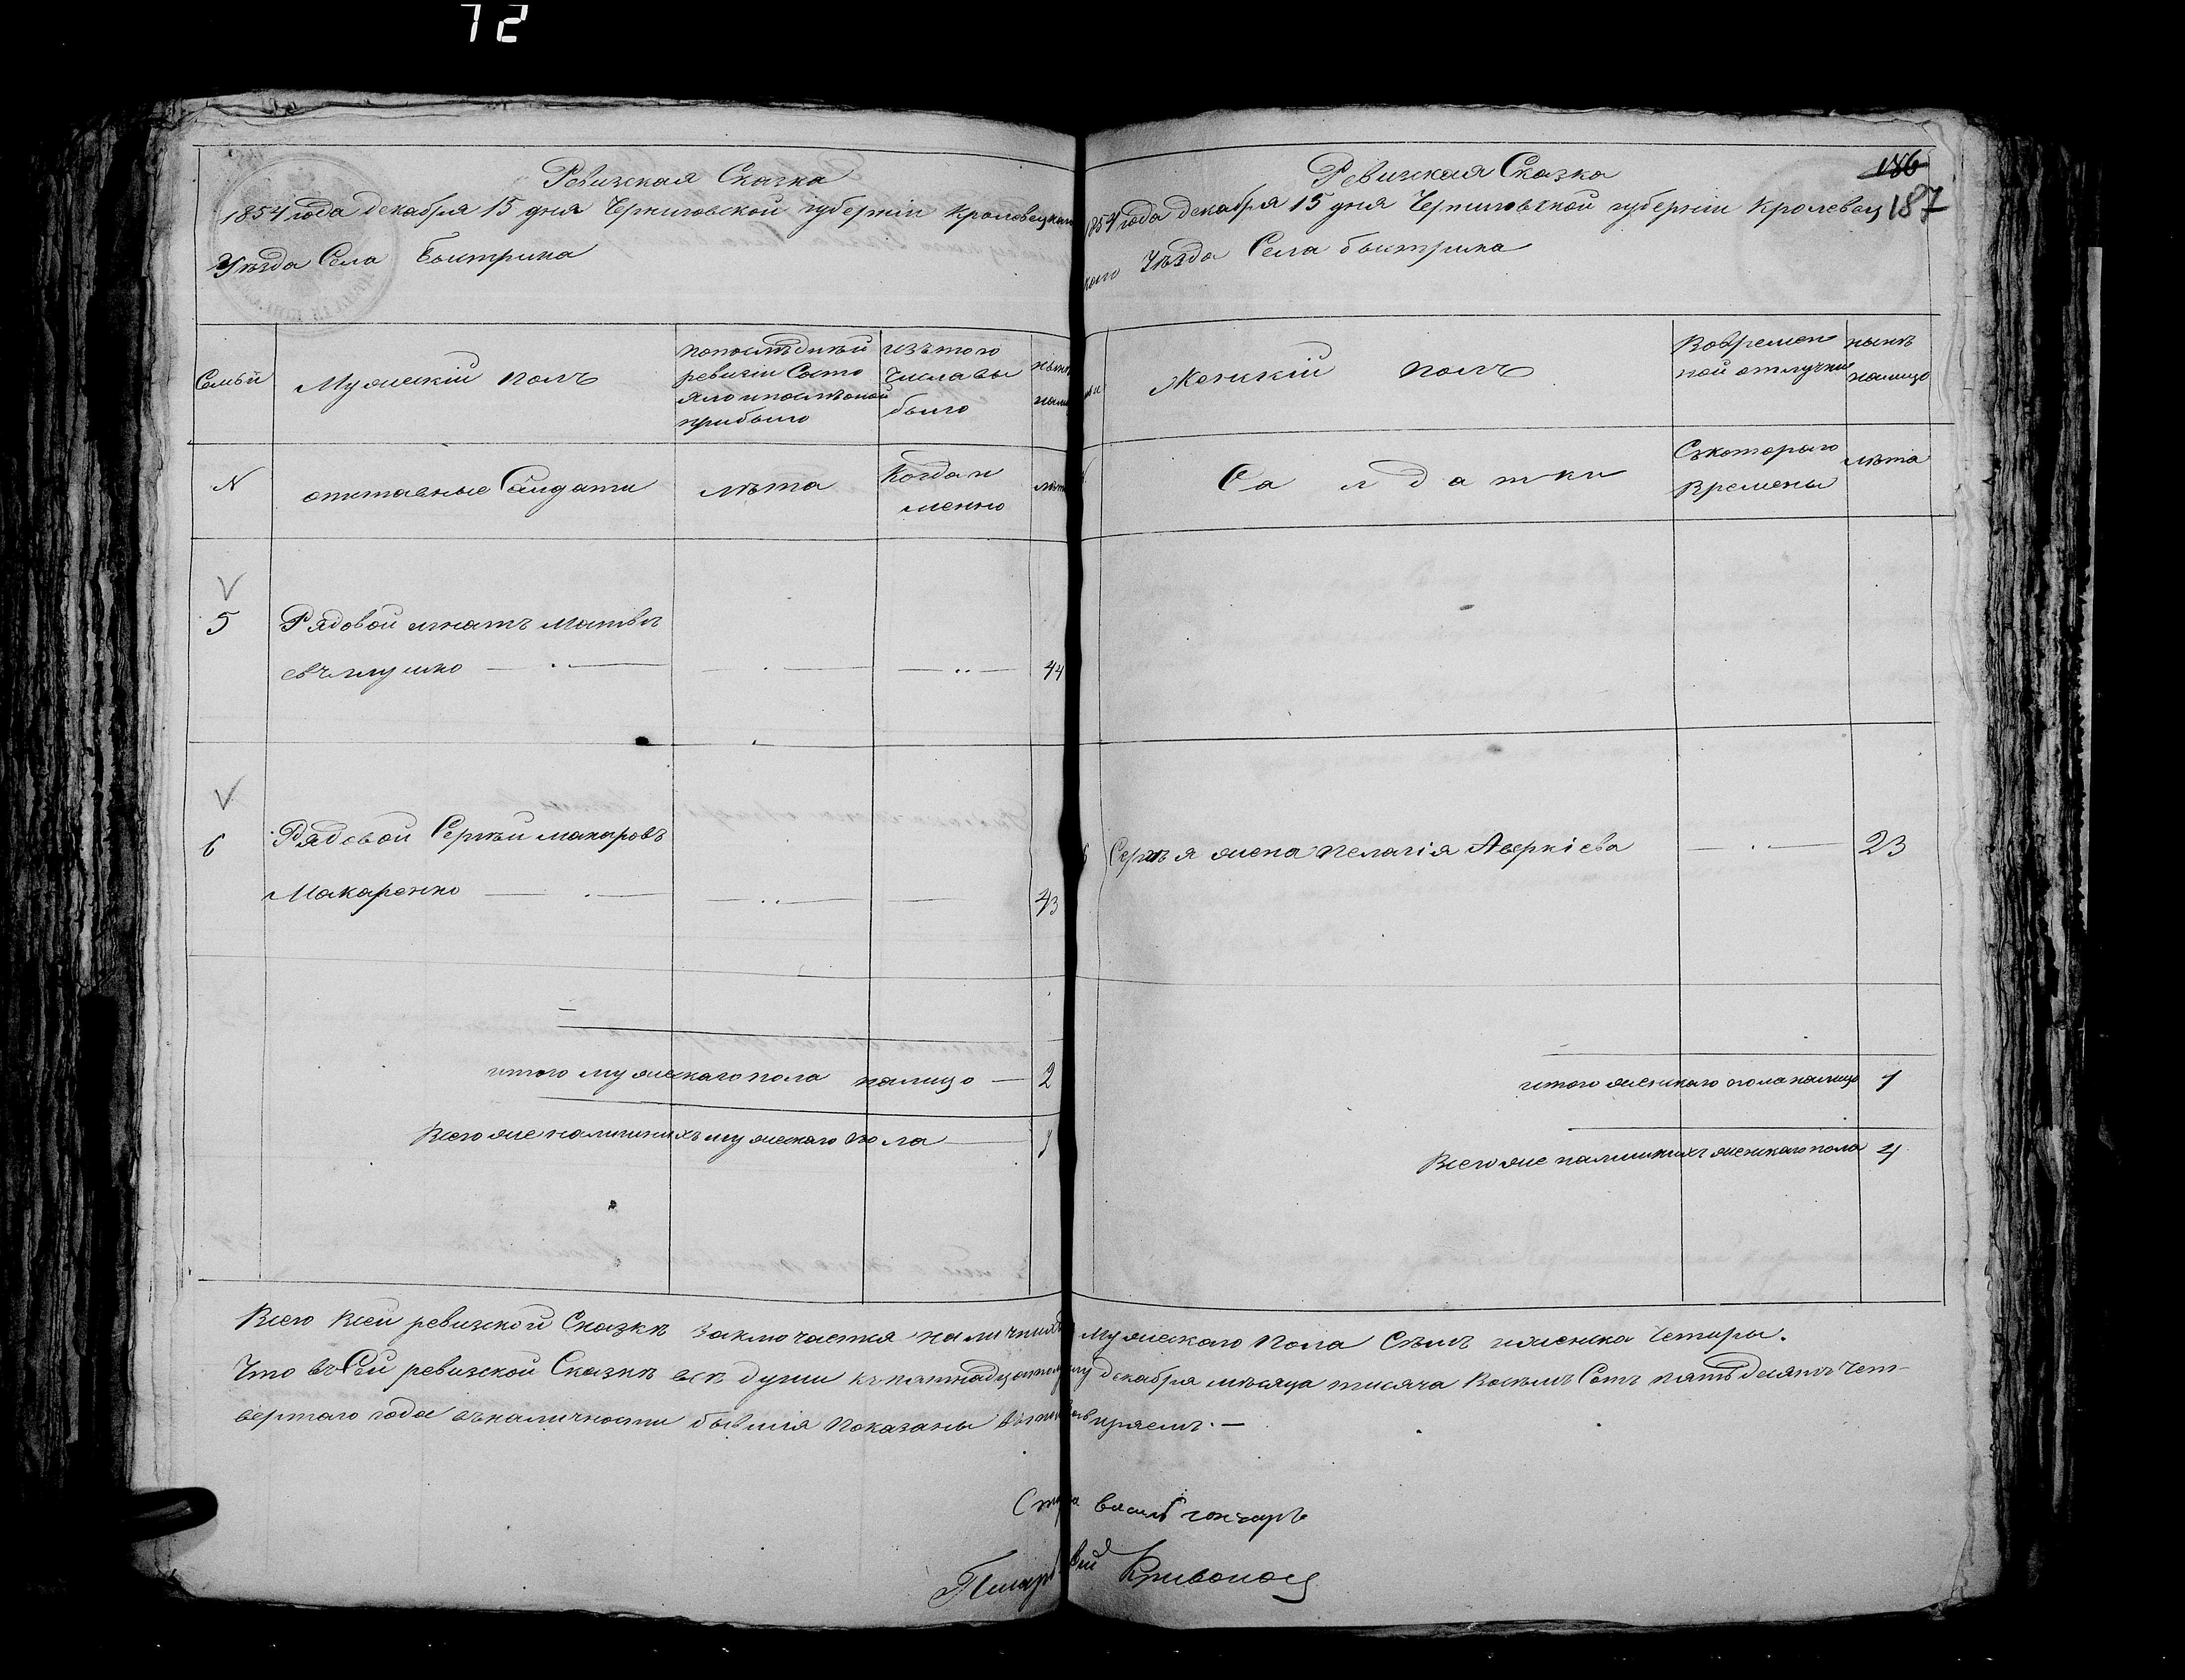 72
Ревизская Сказка
1854 года декабря 15 дня Черниговской губернии Кролевецкаго
Уѣзда Села Быстрика
Семьи
Мужескій полъ
попослѣдней
ревизіи Состо
яло и послѣ оной
прибыло
изъ того
числа вы
было
нынѣ
N
отставные Салдаты
лѣта
Когда и
менно
лѣта
5
Рядовой игнатъ матвѣ
евъ
44
6
Рядовой Сергѣй макаровъ
Макаренко
43
итого мужескаго пола налицо 2
Всего же наличныхъ мужескаго пола
Ревизская Сказка
186
187
1854 года декабря 15 дня Черниговской губерніи Кролевец
каго Уѣзда Села быстрика
Женскій полъ
Вовремен
ной отлучке
нынѣ
налицо
Салдатки
Съкотораго
Времены
лѣта
Сергѣя жена пелагія Аверкіева 23
итого женскаго пола налицо 1
Всего же наличныхъ женскаго пола 4
Всего всей ревизской Сказкѣ заключается наличныхъ мужескаго пола Сѣмъ и женска четыри.
Что въ Сей ревизской Сказкѣ всѣ души къ пятнадцатому декабря мѣсяца тисяча Восѣмъ Сотъ пятьдесятъ чет-
вертаго года въ наличности бывшія показаны в том
василь гончаръ
Писарь Кривонос